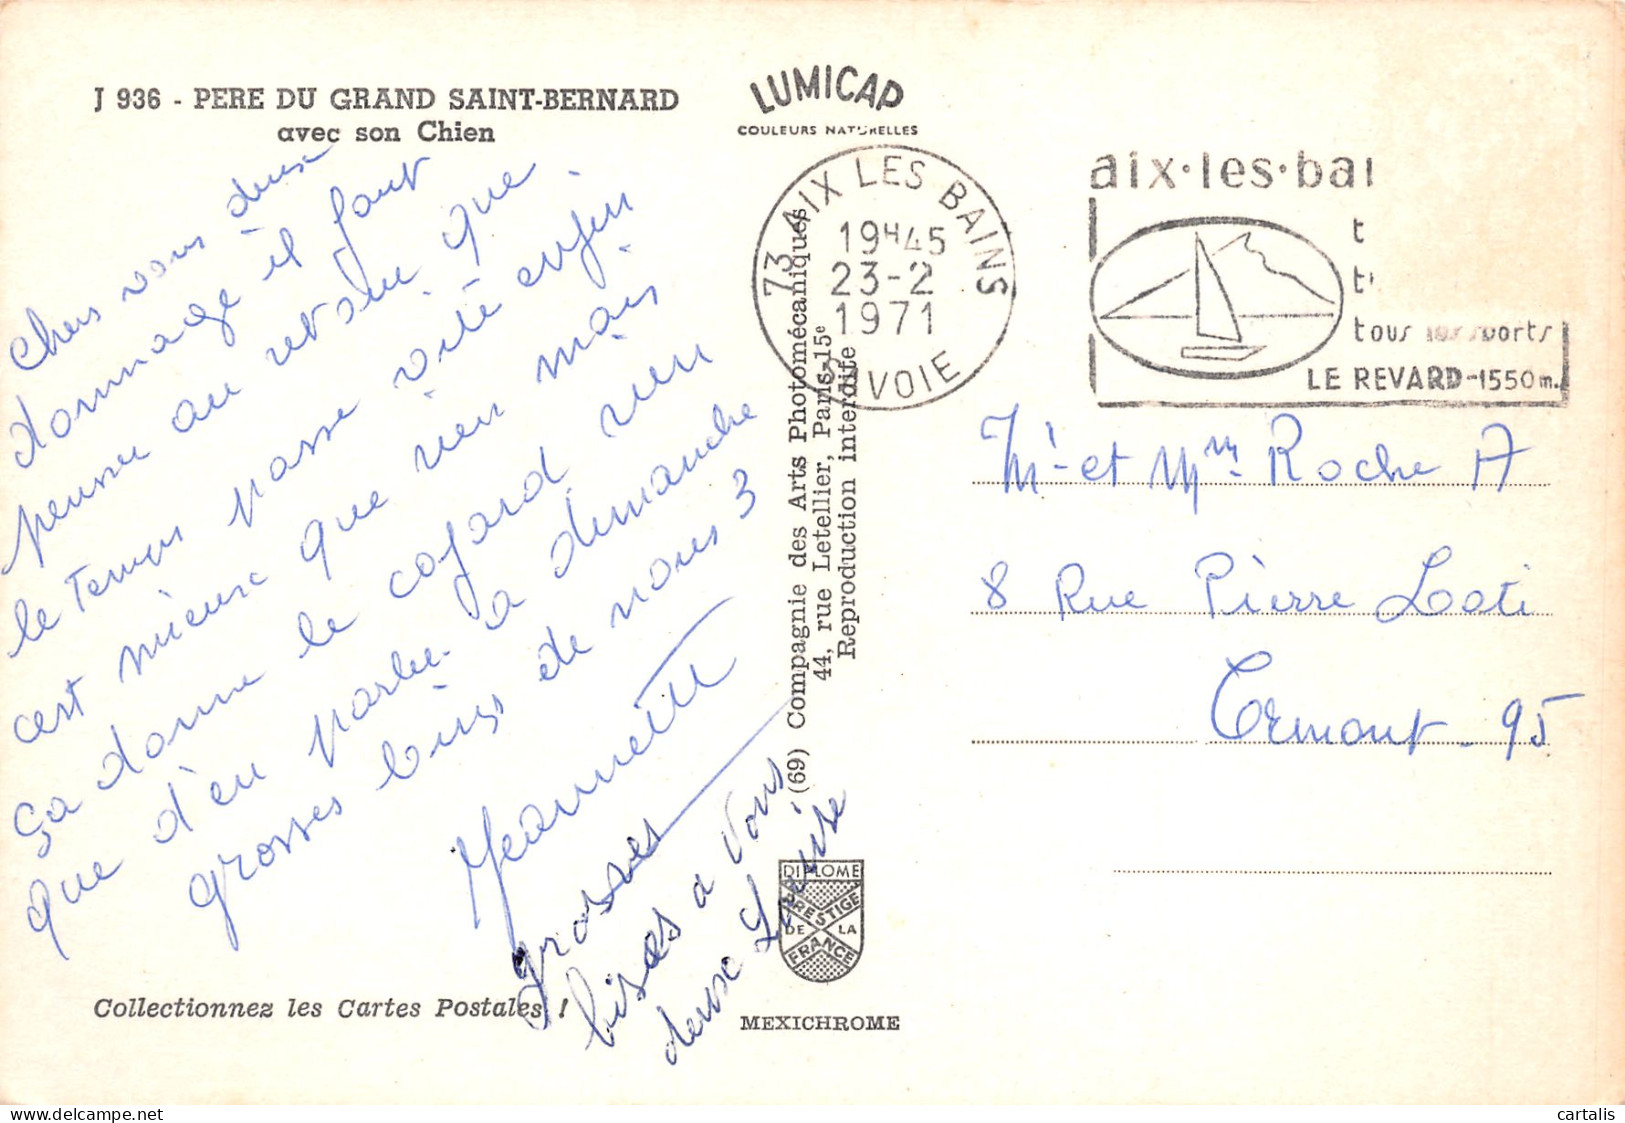 J 936 - PERE DU GRAND SAINT-BERNARD
avec son Chien
LUMICAP
COULEURS NATURELLES
73 AIX LES BAINS
19H45
23-2
1971
SAVOIE
aix·les·bai
t
t
tous les sports
LE REVARD-1550m.
Chers vous deux
dommage il faut
penser au retour que
le temps passe vite enfin
cest mieux que rien mais
ça donne le cafard rien
que d'en parler. a dimanche
grosses bises de nous 3
Jeannette
grosses
bises a vous
deux Louise
(69) Compagnie des Arts Photomécaniques
44, rue Letellier, Paris-15e
Reproduction interdite
Mr et Mme Roche A
8 Rue Pierre Loti
Ermont - 95
DIPLOME
PRESTIGE
DE LA
FRANCE
Collectionnez les Cartes Postales !
MEXICHROME
cartalis